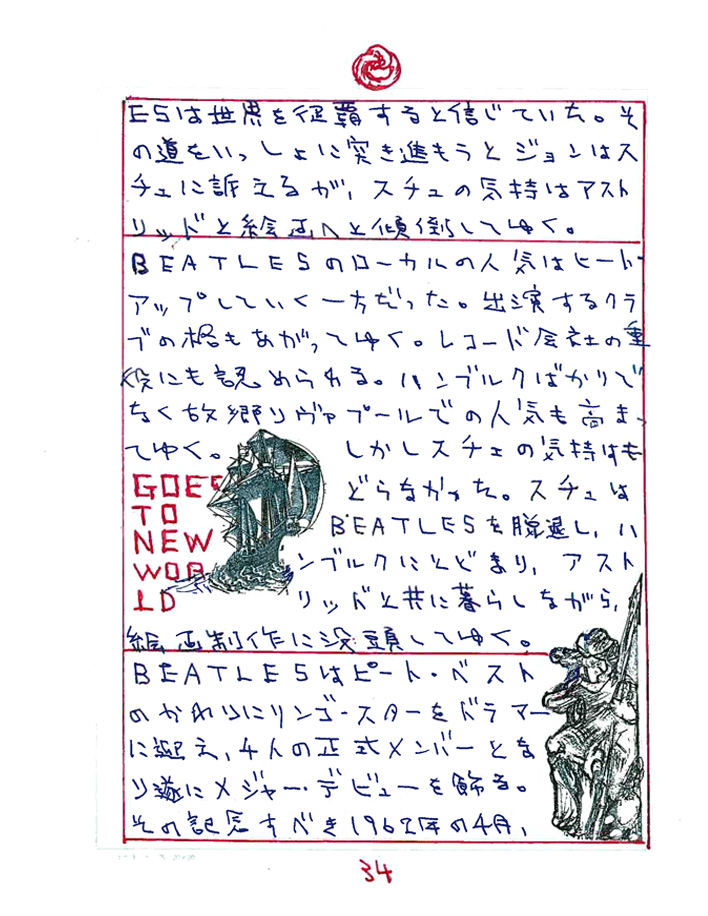 ESは世界を征覇すると信じていた。そ
の道をいっしょに突き進もうとジョンはス
チュに訴えるが、スチュの気持はアスト
リッドと絵画へと傾倒してゆく。
BEATLESのローカルの人気はヒート・
アップしていく一方だった。出演するクラ
ブの格もあがってゆく。レコード会社の重
役にも認められる。ハンブルクばかりで
なく故郷リヴァプールでの人気も高まっ
てゆく。
しかしスチュの気持はも
どらなかった。スチュは
BEATLESを脱退し、ハ
ンブルクにとどまり、アスト
リッドと共に暮らしながら、
絵画制作に没頭してゆく。
GOES
TO
NEW
WOR
LD
BEATLESはピート・ベスト
のかわりにリンゴ・スターをドラマー
に迎え、4人の正式メンバーとな
り遂にメジャー・デビューを飾る。
その記念すべき1962年の4月、
34